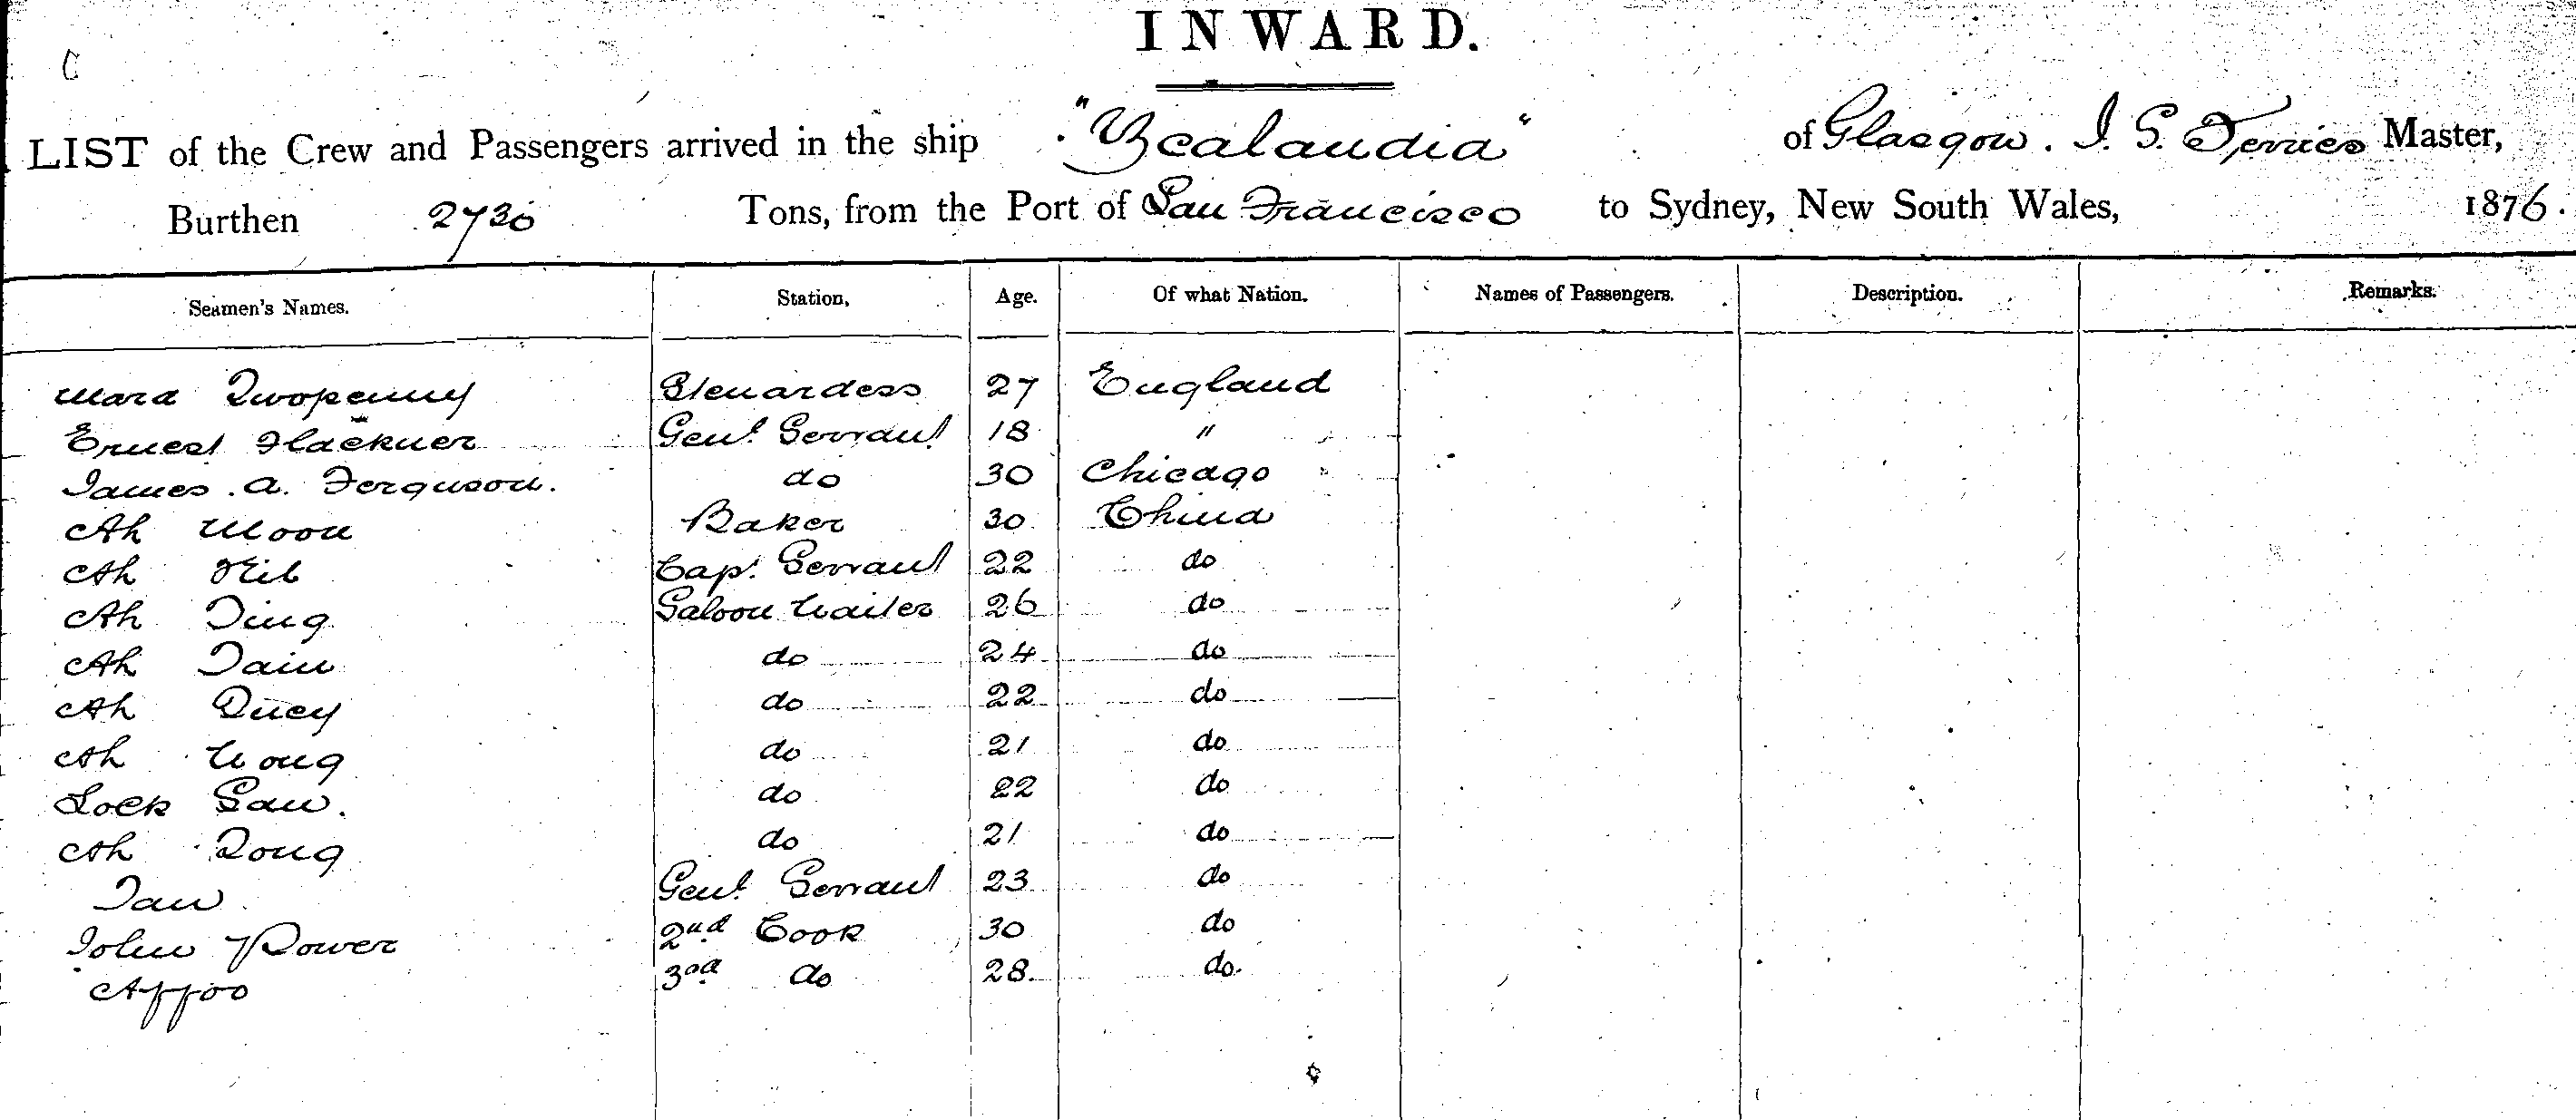 C
INWARD.
LIST of the Crew and Passengers arrived in the ship "Zealandia" of Glasgow. J. S. Ferries Master,
Burthen 2730 Tons, from the Port of San Francisco to Sydney, New South Wales, 1876.
Seamen's Names. Station, Age. Of what Nation. Names of Passengers. Description. Remarks.
Mara Twopenny Stewardess 27 England
Ernest Flackner Genl. Servant 18 "
James. A. Ferguson. do 30 Chicago
Ah Moon Baker 30 China
Ah Capt. Servant 22 do
Ah Ting Saloon Waiter 26 do
Ah Tain do 24 do
Ah Quey do 22 do
Ah Wong do 21 do
Lock San. do 22 do
Ah Tong do 21 do
Tan Genl. Servant 23 do
John Power 2nd Cook 30 do
Affoo 3rd do 28 do.